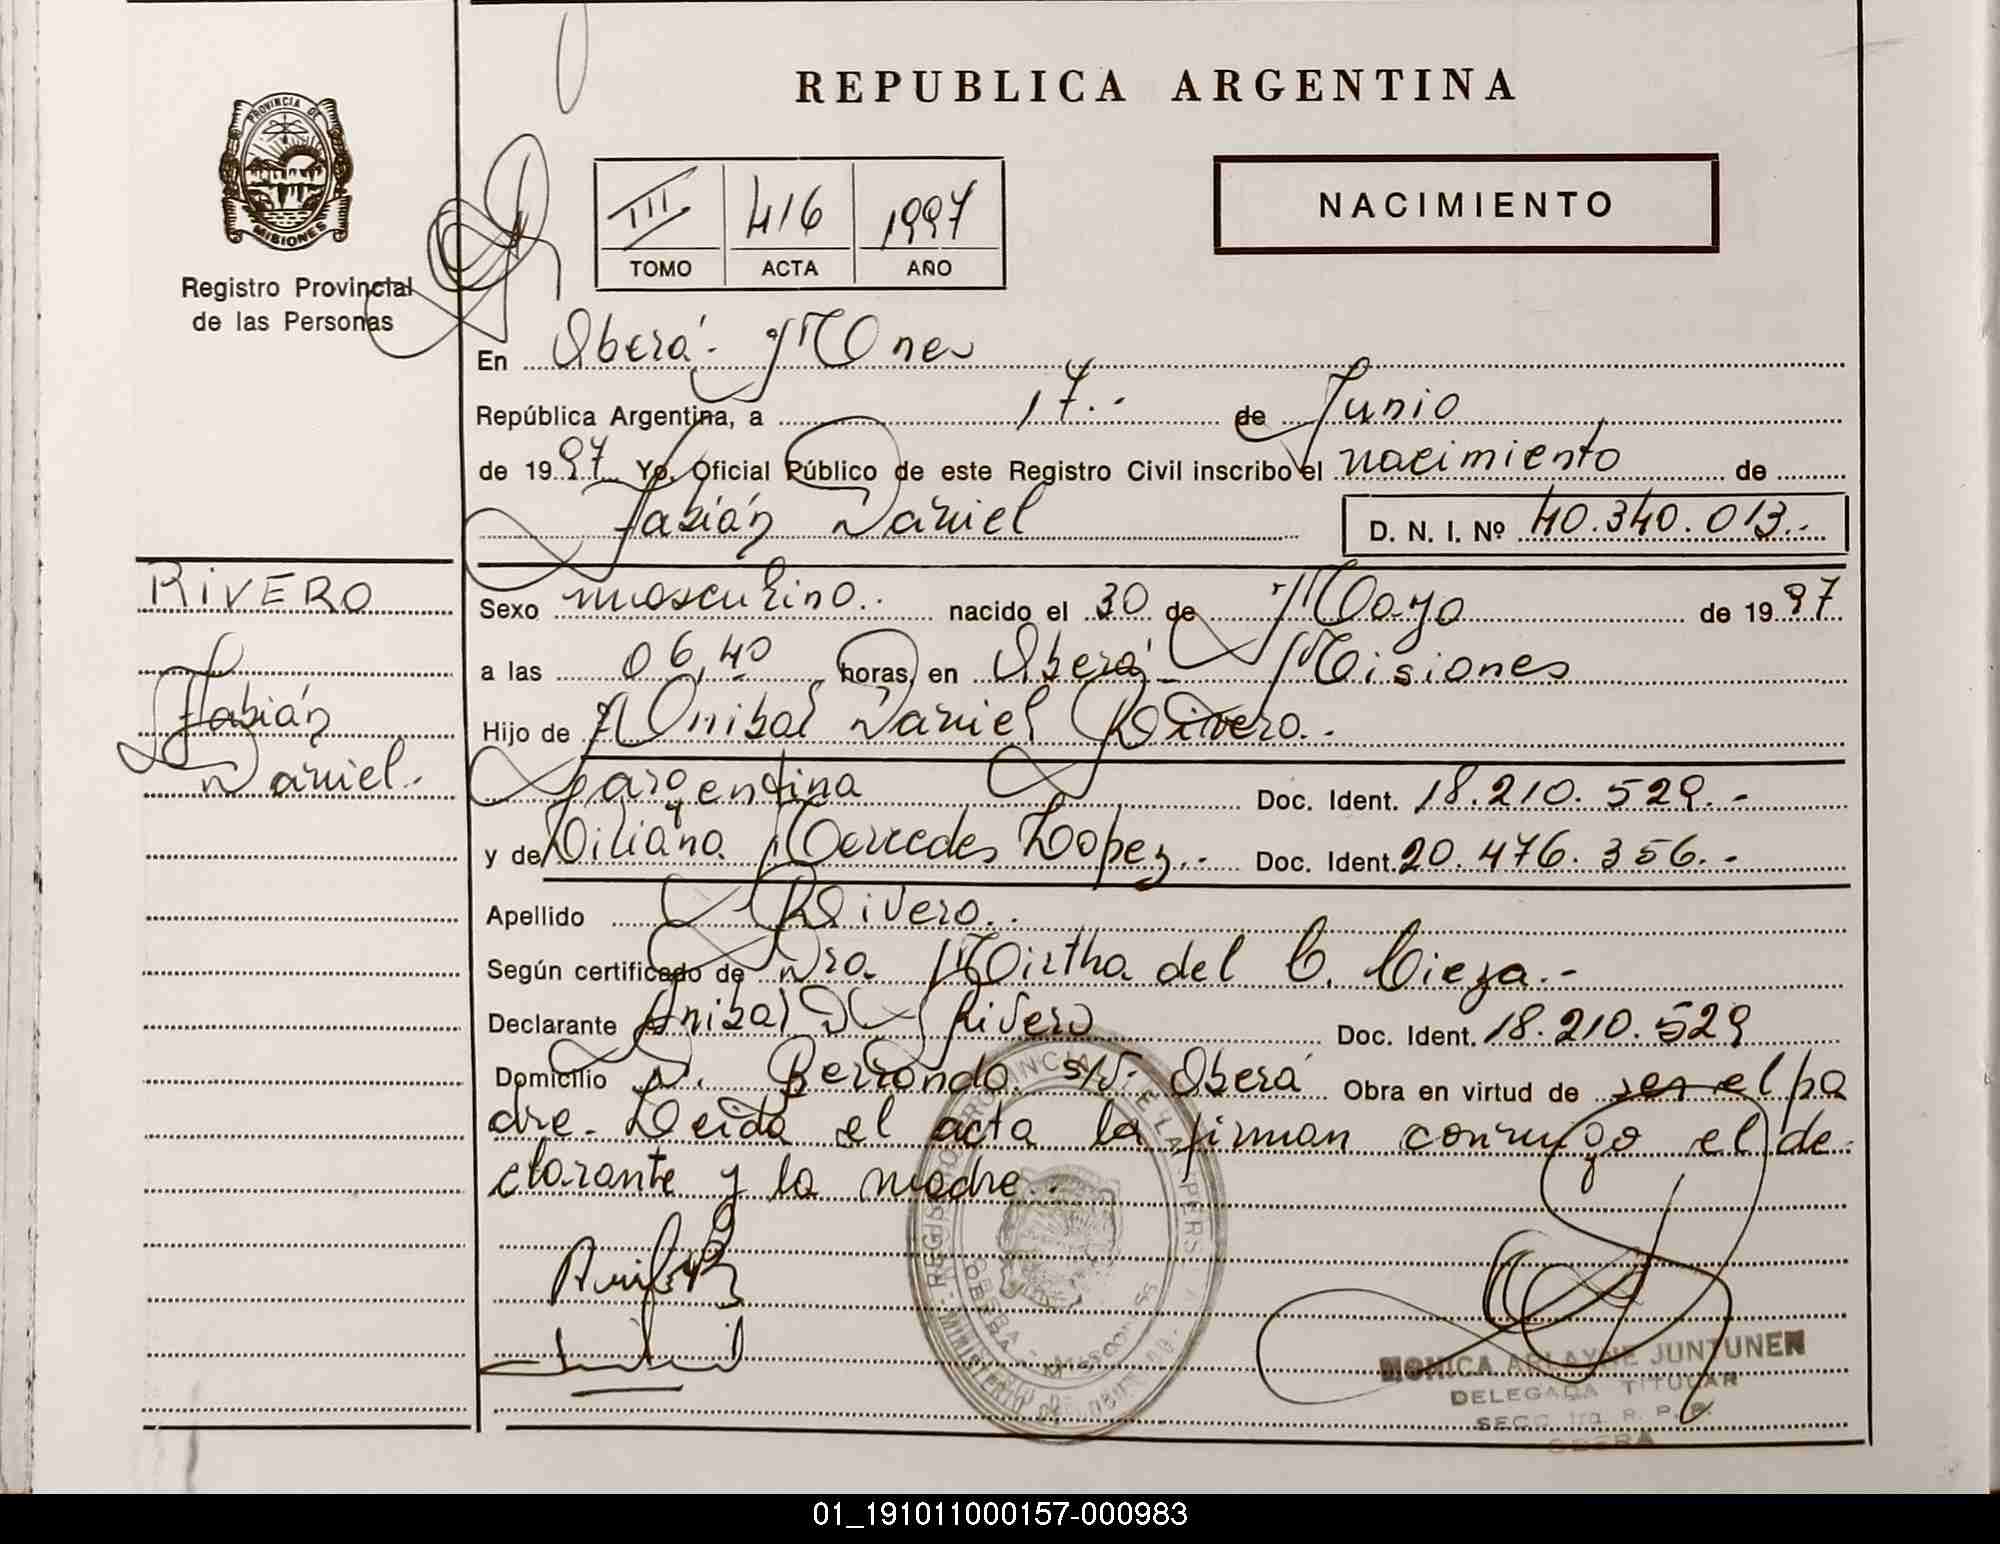 REPUBLICA ARGENTINA
PROVINCIA DE
MISIONES
Registro Provincial
de las Personas
III 416 1997
TOMO ACTA AÑO
NACIMIENTO
En Oberá - Mnes
República Argentina, a 17.- de Junio
de 1997 Yo, Oficial Público de este Registro Civil inscribo el nacimiento de
Fabián Daniel D. N. I. Nº 40.340.013.-
RIVERO
Fabián
Daniel.-
Sexo masculino.. nacido el 30 de Mayo de 1997
a las 06,40 horas, en Oberá - Misiones
Hijo de Anibal Daniel Rivero.-
argentina Doc. Ident. 18.210.529.-
y de Viliana Mercedes Lopez.- Doc. Ident. 20.476.356.-
Apellido Rivero..
Según certificado de Dra. Mirtha del C. Cieza.-
Declarante Anibal D. Rivero Doc. Ident. 18.210.529
Domicilio Berrondo s/n. Oberá Obra en virtud de ser el pa
dre. Leida el acta la firman conmigo el de-
clarante y la madre..
MONICA ARLAYNE JUNTUNEN
DELEGADA TITULAR
SECC. 1ra. R. P. P.
OBERA
01_191011000157-000983